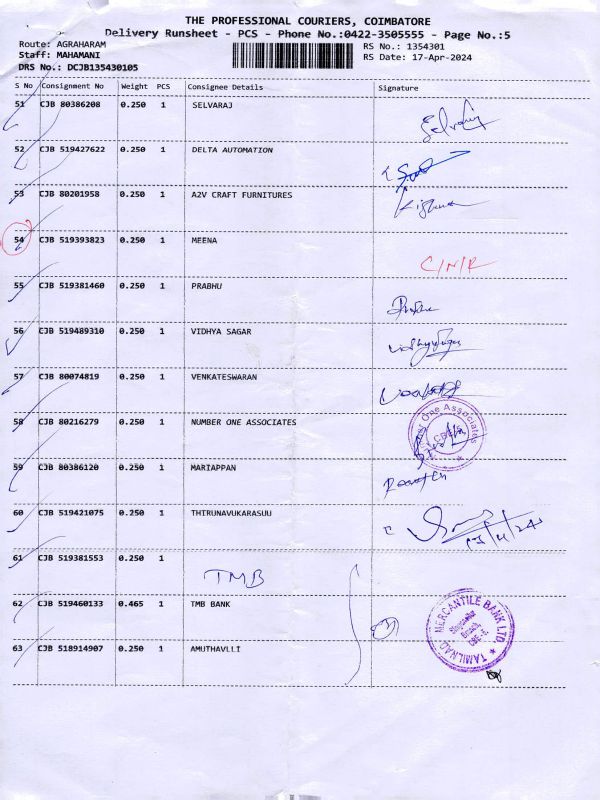 THE PROFESSIONAL COURIERS, COIMBATORE
Delivery Runsheet - PCS - Phone No.:0422-3505555 - Page No.:5
Route: AGRAHARAM RS No.: 1354301
Staff: MAHAMANI RS Date: 17-Apr-2024
DRS No.: DCJB135430105
S No Consignment No Weight PCS Consignee Details Signature
51 CJB 80386208 0.250 1 SELVARAJ
52 CJB 519427622 0.250 1 DELTA AUTOMATION
53 CJB 80201958 0.250 1 A2V CRAFT FURNITURES
54 CJB 519393823 0.250 1 MEENA
C/N/R
55 CJB 519381460 0.250 1 PRABHU
56 CJB 519489310 0.250 1 VIDHYA SAGAR
57 CJB 80074819 0.250 1 VENKATESWARAN
58 CJB 80216279 0.250 1 NUMBER ONE ASSOCIATES
Number One Associates
59 CJB 80386120 0.250 1 MARIAPPAN
60 CJB 519421075 0.250 1 THIRUNAVUKARASUU
61 CJB 519381553 0.250 1
TMB
62 CJB 519460133 0.465 1 TMB BANK
TAMILNAD MERCANTILE BANK LTD.
63 CJB 518914907 0.250 1 AMUTHAVLLI